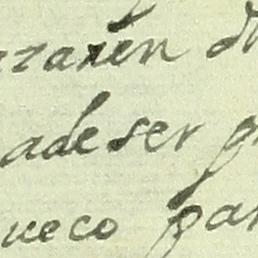 zzaren d
adeser p
ueco par